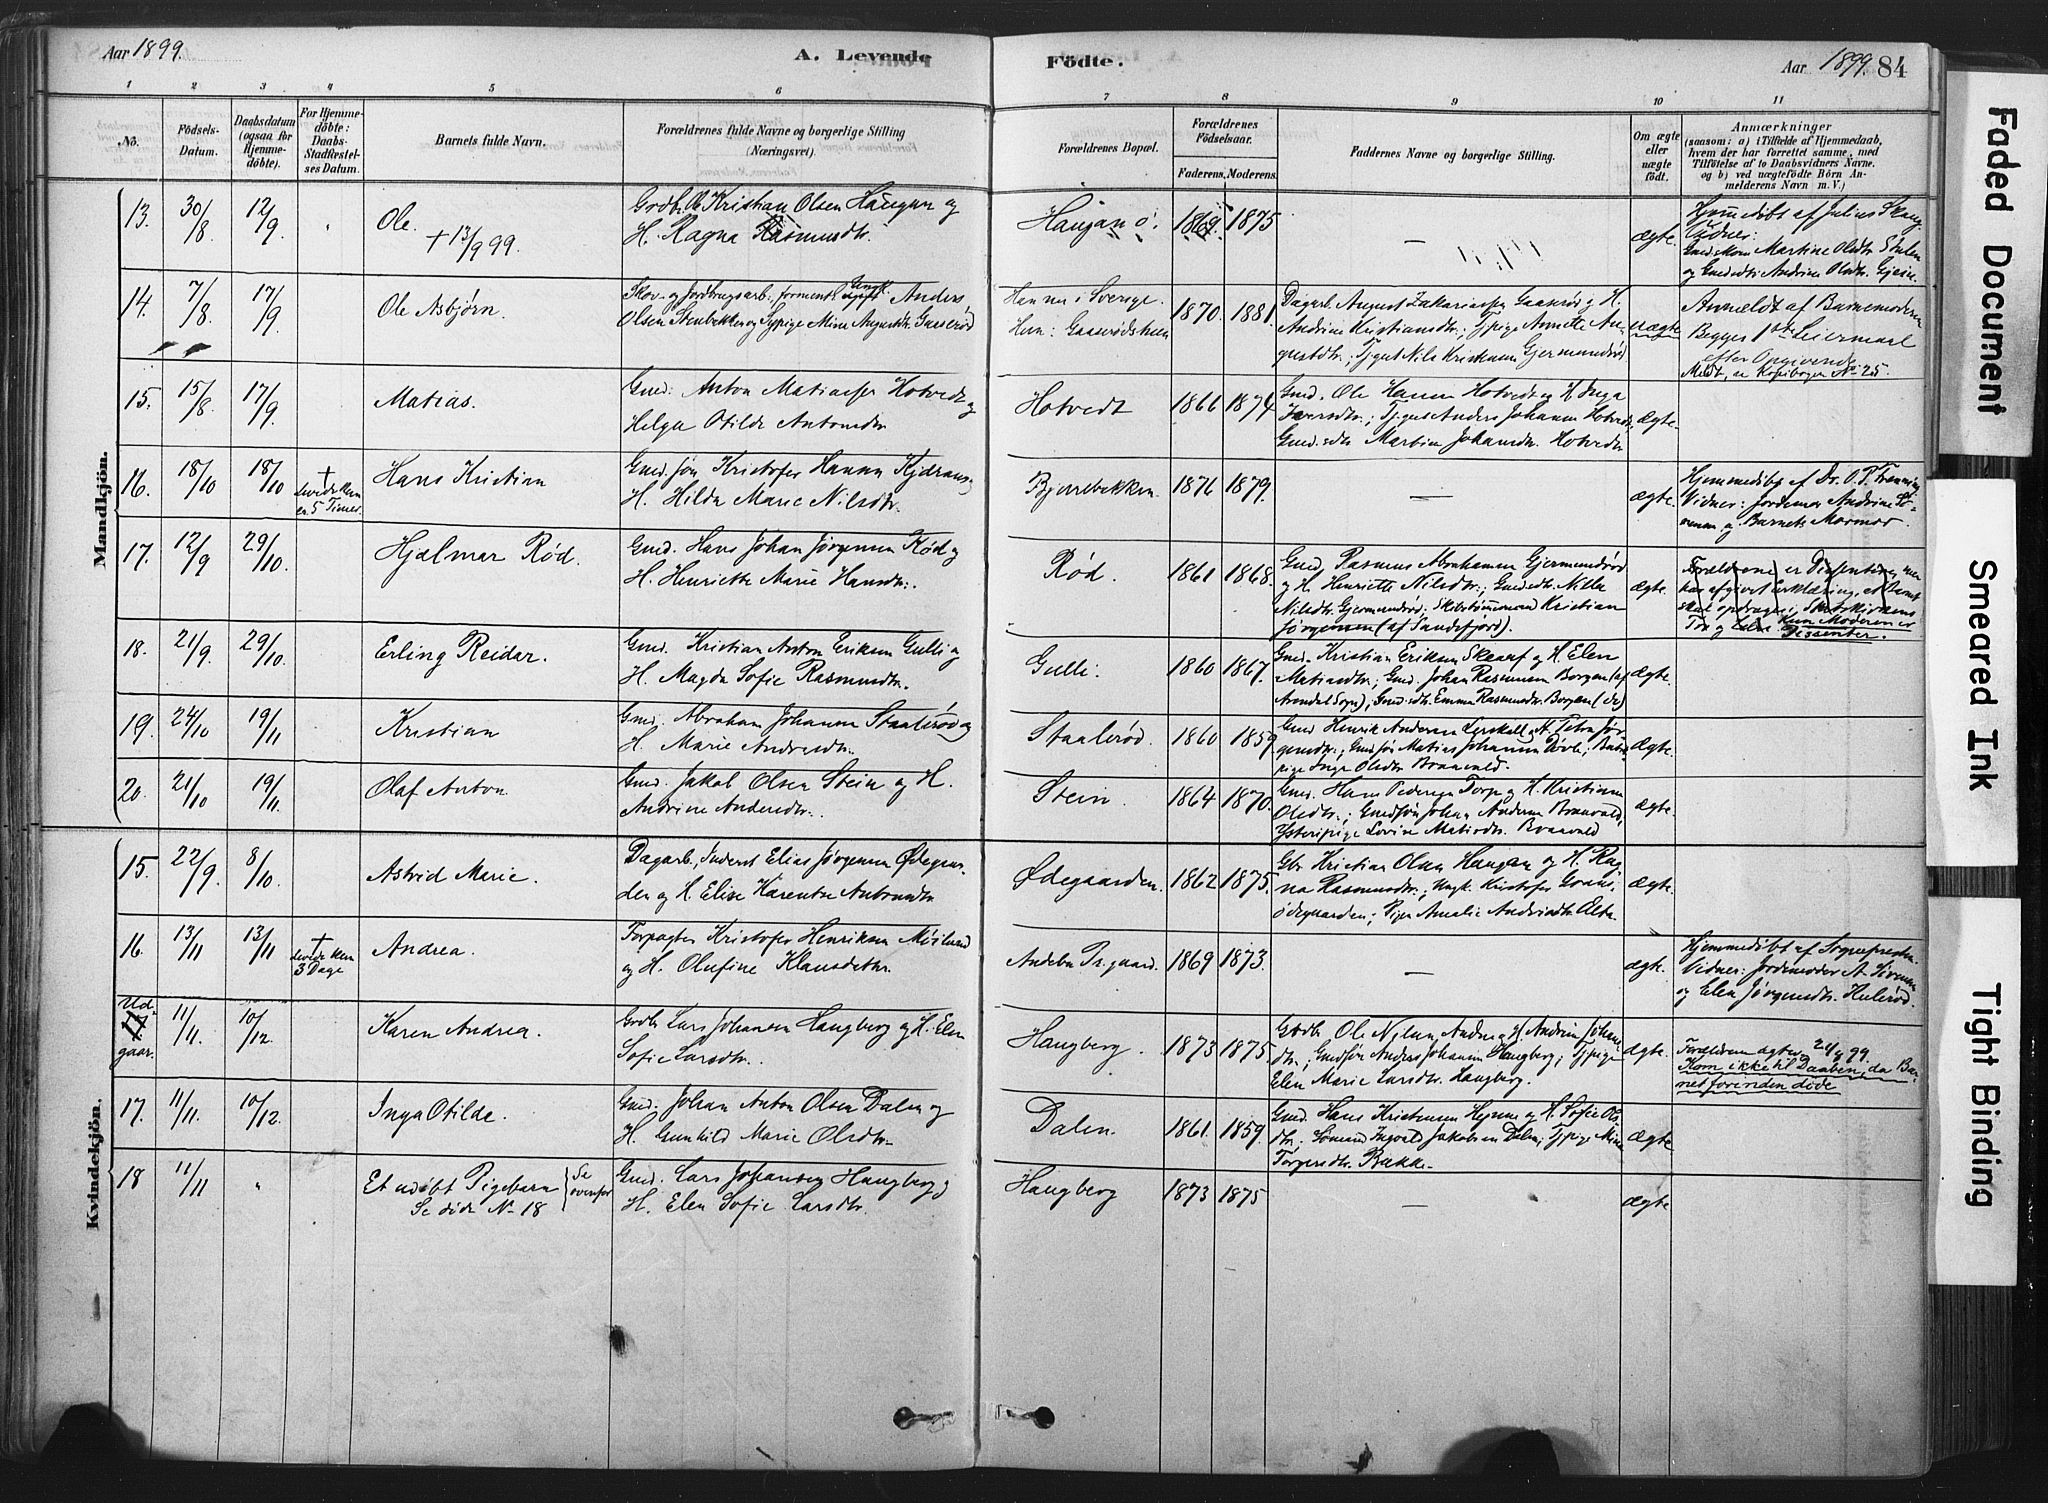 Aar 1899.
A. Levende
Födte.
Aar 1899. 84
1 2 3 4 5 6
7 8 9 10 11
No.
Födsels-Datum.
Daabsdatum (ogsaa for Hjemme-döbte).
For Hjemme-döbte: Daabs-Stadfæstel-ses Datum.
Barnets fulde Navn.
Forældrenes fulde Navne og borgerlige Stilling (Næringsvei).
Forældrenes Bopæl.
Forældrenes Födselsaar.
Faderens. Moderens.
Faddernes Navne og borgerlige Stilling.
Om ægte eller uægte födt.
Anmærkninger
(saasom: a) i Tilfælde af Hjemmedaab,
hvem der har forrettet samme, med
Tilföielse af to Daabsvidners Navne.
og b) ved uægtefödte Börn An-
melderens Navn m. V.)
Mandkjön.
13. 30/8 12/9 " Ole. + 13/9 99.
Kristian Olsen Haugan og
H. Ragna Rasmusdtr.
Haugan 1869. 1875 — ægte.
Hjemmedöbt af Julius Skaug.
Vidner:
Martine Olsdtr.
og Andrine Olsdtr.
14. 7/8 17/9 Ole Asbjørn.
Skov- og Jordbrugsarb., Ungk. Anders
Olsen Stenbekken og Sypige Mina Augustdtr. Gaaserød
Han nu i Sverige.
1870. 1881.
Dagarb. August Zakariassen Gaaserød og H.
Andrine Kristiansdtr.; Tjpige Annette Au-
gustdtr.; Tjgut Nils Kristensen Gjermundrød
uægte
Anmeldt af Barnemoderen
Begges 1ste Leiermaal
efter Opgivende
Meldt, se Kopibogen No 25.
15. 15/8 17/9 Matias.
Gmd. Anton Matiassen Hotvedt og
Helga Otilde Antonsdtr
Hotvedt 1866 1874
Gmd. Ole Hansen Hotvedt og H. Inga
Iversdtr.; Tjgut Anders Johansen Hotvedt;
Gmd.sdtr Martine Johansdtr. Hotvedt
ægte.
16. 18/10 18/10 + levede kun 5 Timer.
Hans Kristian
Gmd.søn Kristofer Hansen og
H. Hilda Marie Nilsdtr.
Bjerkebekken. 1876 1879. — ægte.
Hjemmedöbt af Dr. O. T.
Vidner: Jordemor Andrine
og Barnets Mormor.
17. 12/9 29/10. Hjalmar Rød.
Gmd. Hans Johan Jørgensen Rød og
H. Henriette Marie Hansdtr.
Rød. 1861 1868.
Gmd. Rasmus Abrahamsen Gjermundrød
og H. Henriette Nilsdtr.; Gmdsdtr. Nilla
Nilsdtr. Gjermundrød; Skibstømmermand Kristian
Jørgensen (af Sandefjord).
ægte.
Forældrene er Dissentere, men
har afgivet Erklæring, at Barnet
skal opdrages i Statskirkens
Tro og Lære. Kun Moderen er
Dissenter.
18. 21/9. 29/10. Erling Reidar.
Gmd. Kristian Anton Eriksen Gulli og
H. Magda Sofie Rasmusdtr.
Gulli. 1860 1867.
Gmd. Kristian Eriksen og H. Elen
Matiasdtr.; Gmd. Johan Rasmussen Borgen (af
Arendal Sogn); Gmd.sdtr. Emma Rasmusdtr. Borgen (do)
ægte.
19. 24/10 19/11 Kristian
Gmd. Abraham Johansen Staalerød og
H. Marie Andersdtr.
Staalerød. 1860 1859
Gmd Henrik Andersen og H. Petra Jør-
gensdtr.; Gmdsøn Matias Johansen
pige Inga Olsdtr. Braavold.
ægte.
20. 21/10 19/11. Olaf Anton.
Gmd. Jakob Olsen Stein og H.
Andrine Andersdtr.
Stein. 1864 1870.
Gmd. Hans Pedersen Torp og H. Kristiane
Olsdtr.; Gmdsøn Johan Andersen Braavold,
Lovise Matisdtr. Braavold
ægte.
Kvindekjön.
15. 22/9. 8/10. Astrid Marie.
Dagarb., Inderst Elias Jørgensen Ødegaar-
den og H. Elise Karentse Antonsdtr
Ødegaarden. 1862 1875.
Gbr Kristian Olsen Haugan og H. Rag-
na Rasmusdtr.; Ungk. Kristofer
Ødegaarden; Pige Amalie Andreasdtr.
ægte.
16. 13/11 13/11 + levede kun 3 Dage
Andrea.
Forpagter Kristofer Henriksen
og H. Olufine Klausdtr.
Andebu Pr.gaard. 1869 1873. — ægte.
Hjemmedöbt af Sognepresten.
Vidner: Jordemoder A. Sørensen
og Elen Jørgensdtr. Hulerød.
Ud-
17.
gaar.
11/11. 10/12. Karen Andrea.
Gbr Lars Johansen Haugberg og H. Elen
Sofie Larsdtr.
Haugberg. 1873 1875.
Gbr Ole Nilsen og H. Andrine Johans-
dtr.; Gmdsøn Anders Johansen Haugberg; Tjpige
Elen Marie Larsdtr. Haugberg.
ægte.
99.
Kom ikke til Daaben, da Bar-
net forinden døde
17. 11/11. 10/12. Inga Otilde.
Gmd. Johan Anton Olsen Dalen og
H. Gunhild Marie Olsdtr.
Dalen. 1861. 1859.
Gmd. Hans Kristensen og H. Sofie Ols-
dtr; Sømand Ingvald Jakobsen Dalen; Tjpige Mina
Torgersdtr. Bakke.
ægte
18 11/11 "
Et udöbt Pigebarn
Se døde No 18
Se ovenfor
Gmd. Lars Johansen Haugberg og
H. Elen Sofie Larsdtr.
Haugberg 1873 1875 — ægte
Faded Document
Smeared Ink
Tight Binding